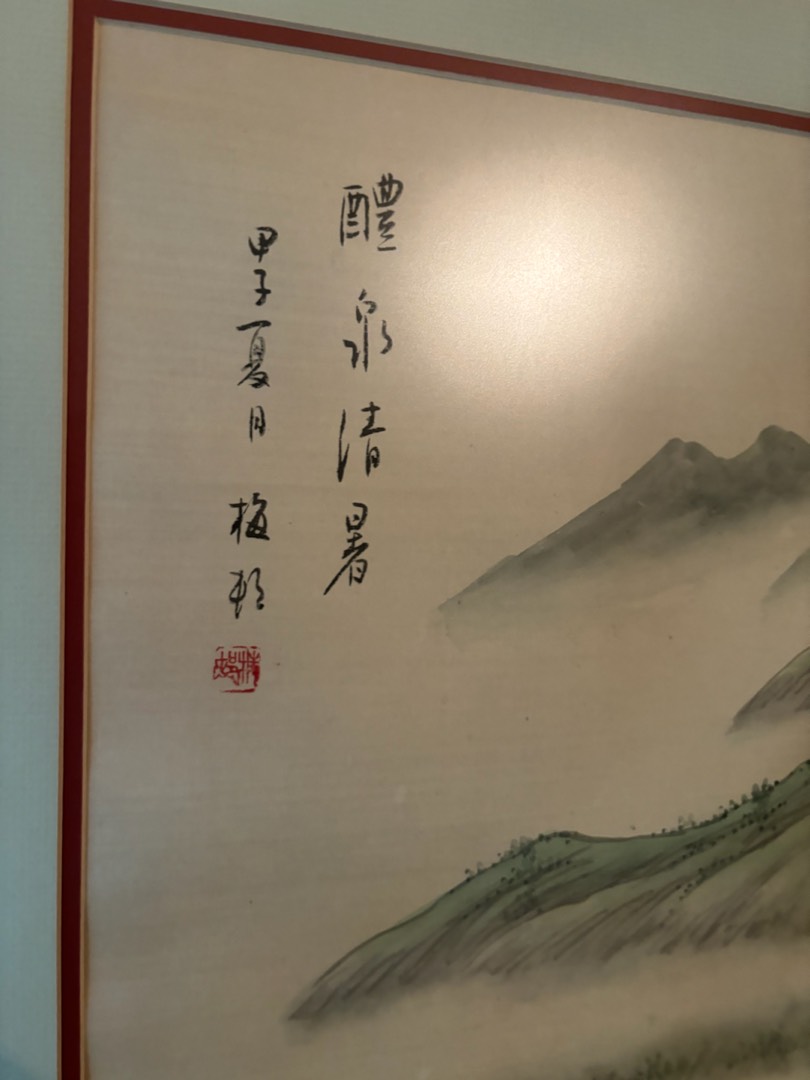 醴泉清暑
甲子夏月 梅邨